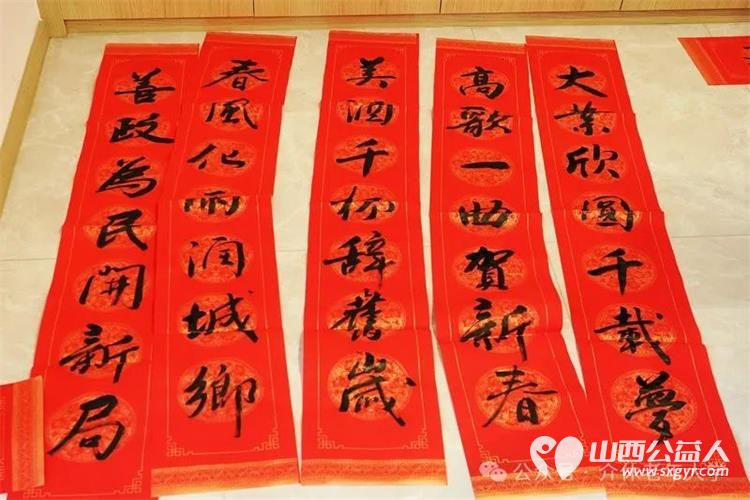 善政為民開新局
春風化雨润城鄉
美酒千杯辞舊歲
高歌一曲賀新春
大業欣圓千載夢
山西公益人
www.sxgyr.com